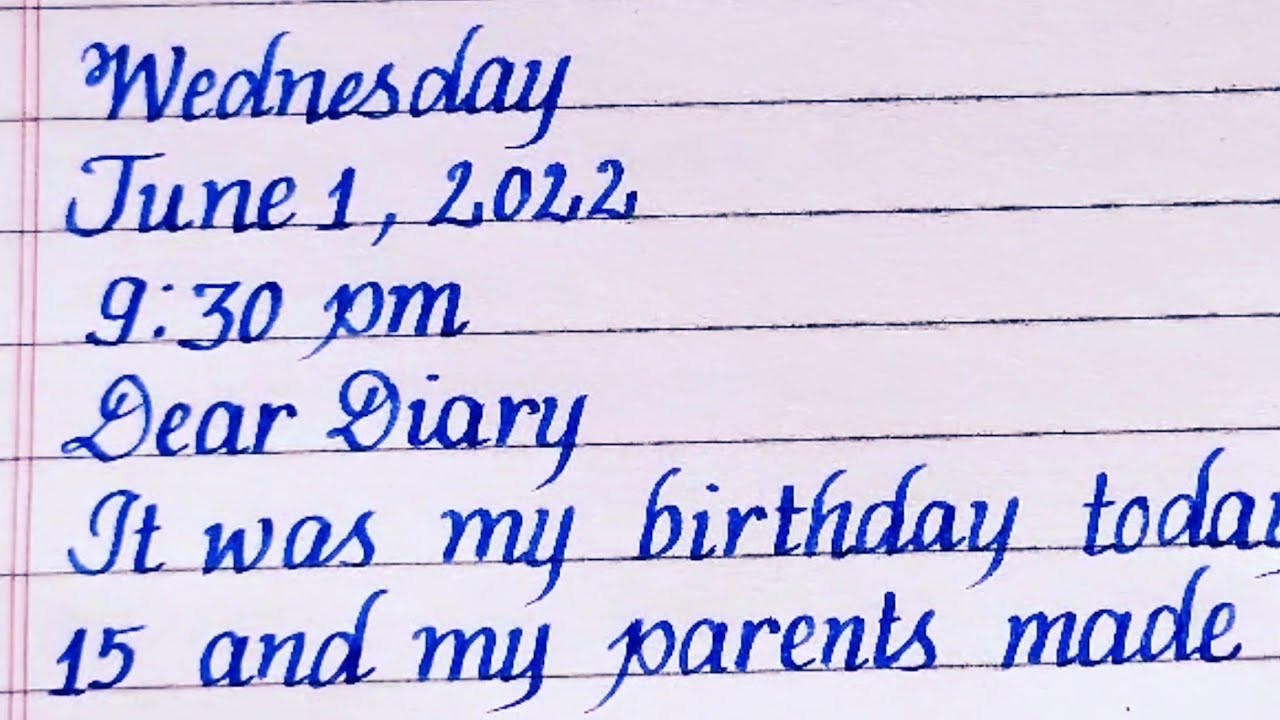 Wednesday
June 1, 2022
9:30 pm
Dear Diary
It was my birthday today
15 and my parents made